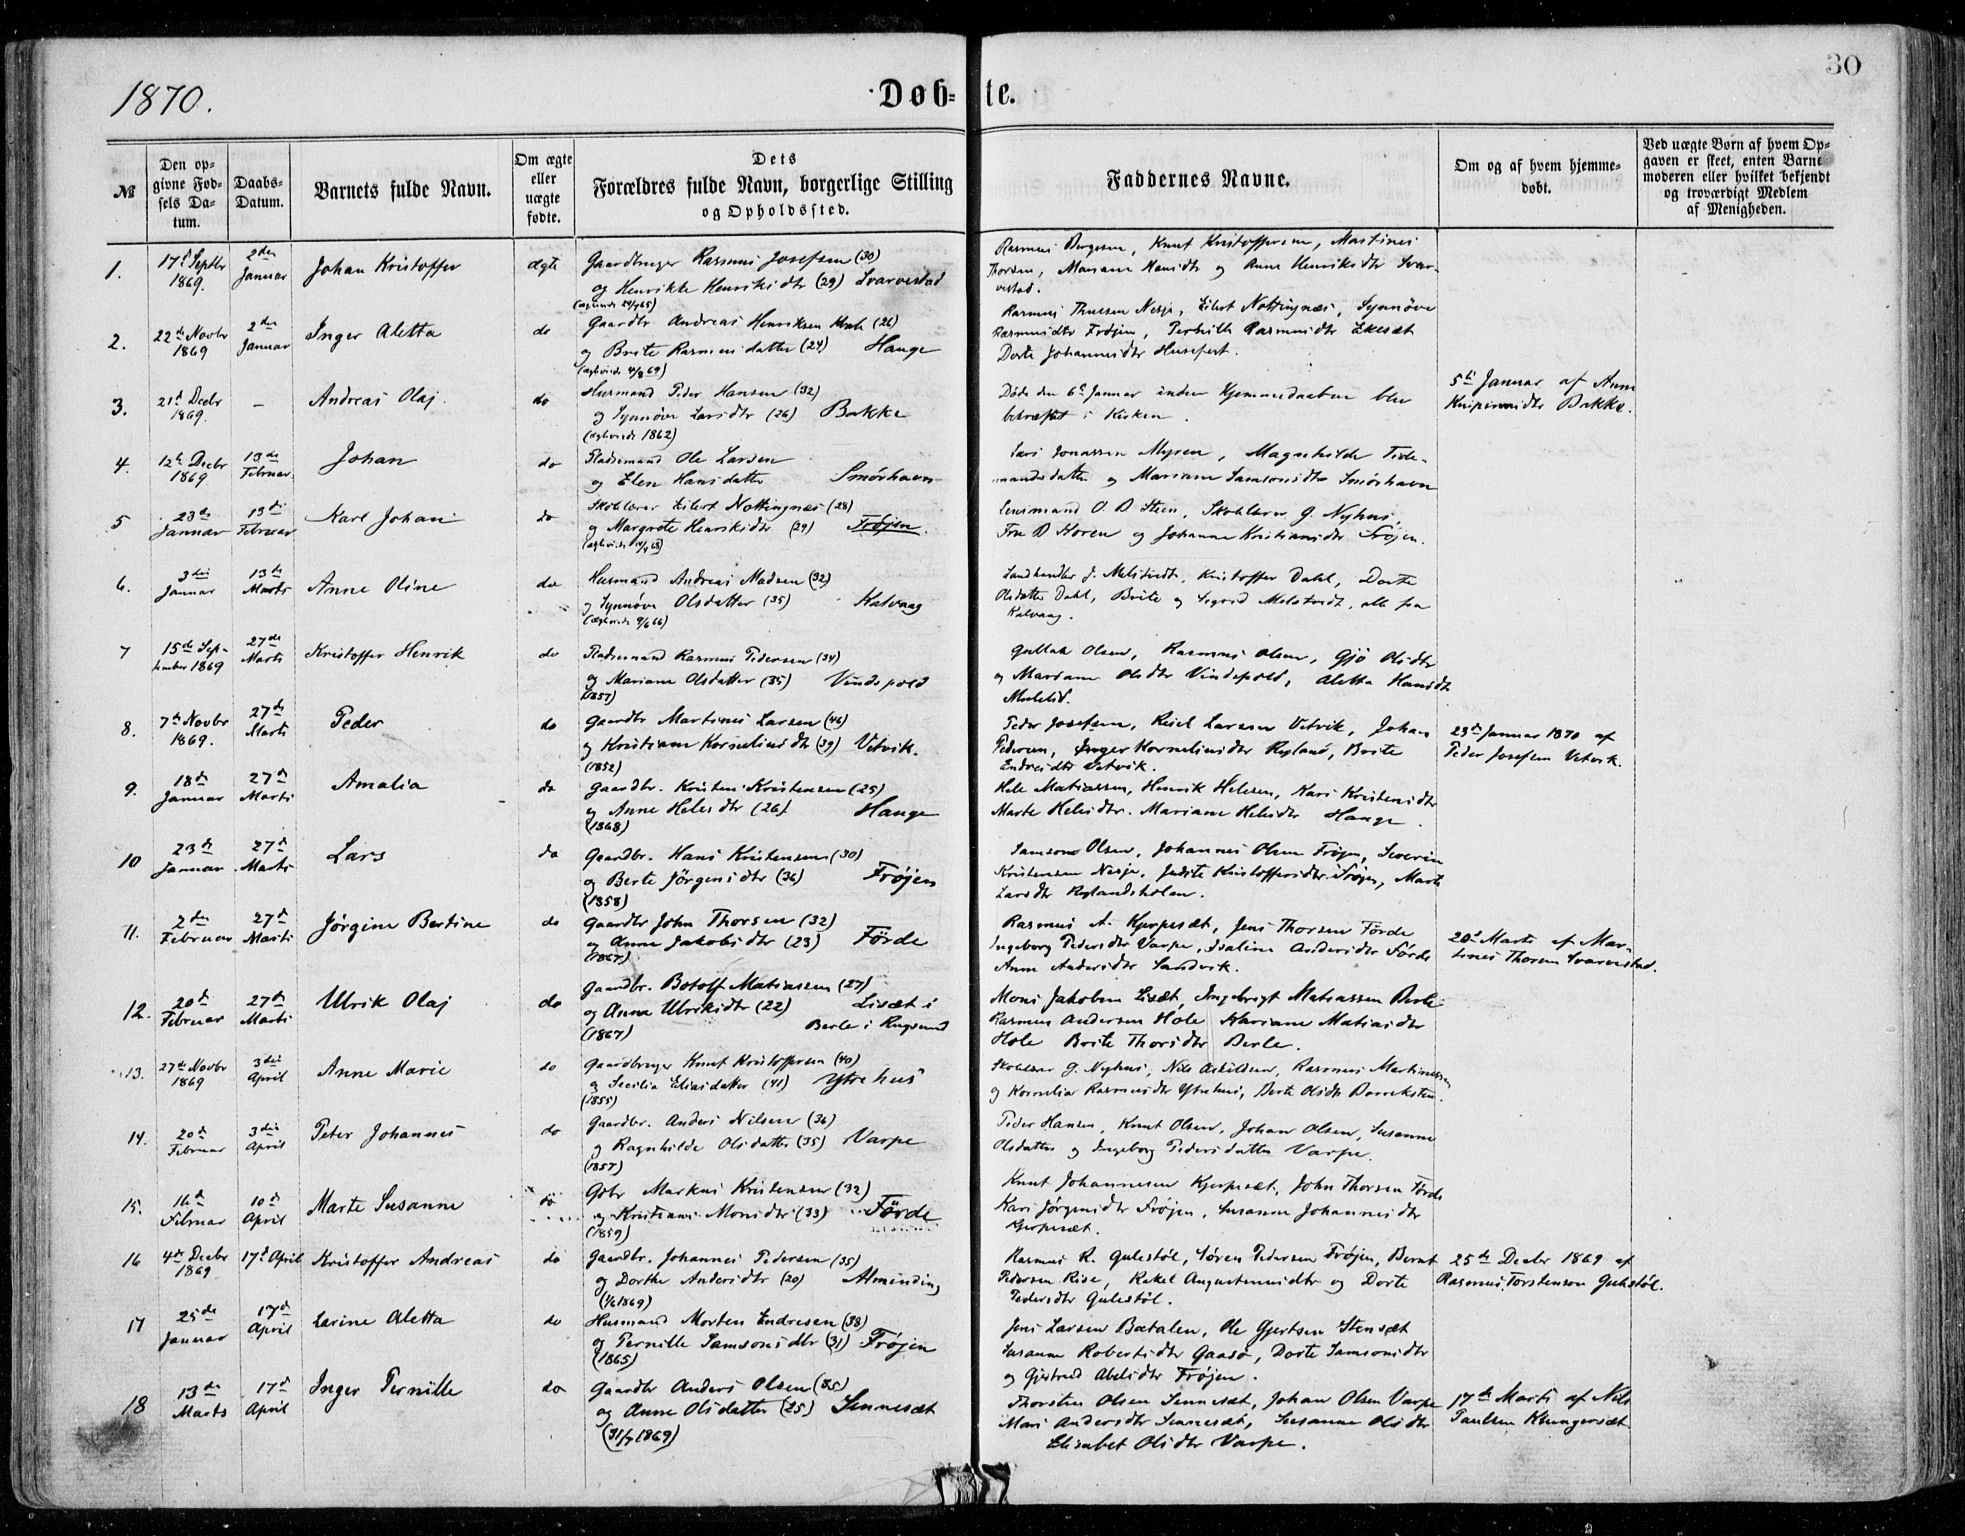 30
1870.
Døb- te.
№
Den opgivne Fødsels Datum.
Daabs-Datum.
Barnets fulde Navn.
Om ægte eller uægte fødte.
Dets Forældres fulde Navn, borgerlige Stilling og Opholdssted.
Faddernes Navne.
Om og af hvem hjemmedøbt.
Ved uægte Børn af hvem Opgaven er skeet, enten Barnemoderen eller hvilket bekjendt og troværdigt Medlem af Menigheden.
1. 17d Septbr 1869 2den Januar Johan Kristoffer ægte Gaardbruger Rasmus Josefsen (30)
og Henrikke Henriksdtr (29) Svarvestad
Knut Kristoffersen, Martines
Thorsen, Mariane Hansdtr og Anne Henriksdtr Svarvestad.
2. 22de Novbr 1869 2den Januar Inger Aletta do Gaardbr Andreas Henriksen (26)
og Brite Rasmusdatter (24) Hauge
Rasmus Thuesen Nesje, Eilert Nottingnæs, Synnøve
Rasmusdtr Frøjen, Pernille Rasmusdtr
Dorte Johannesdtr Husefest.
3. 21d Decbr 1869. – Andreas Olaj. do Husmand Peder Hansen (32)
og Synnøve Larsdtr (26) Bakke
(ægteviede 1862)
Døde den 6te Januar inden Hjemmedaaben blev
bekræftet i Kirken.
5te Januar af Anne
Bakke.
4. 12te Decbr 1869 13de Februar Johan do Pladsmand Ole Larsen
og Elen Hansdatter Smørhavn
Lars Jonassen Myren, Magnhilde Tidemandsdatter og Mariane Samsonsdtr Smørhavn
5 23de Januar 13de Februar Karl Johan do Skolelærer Eilert Nottingnæs (28)
og Margrete Henriksdtr (29) Frøjen.
Lensmand O. D Steen, Skolelærer G. Nyhus,
Fru D Koren og Johanne Kristiansdtr Frøjen.
6. 3die Januar 13de Marts Anne Oline do Husmand Andreas Madsen (32)
og Synnøve Olsdatter (35) Kalvaag
(ægteviede 9/6 66)
Landhandler J. Melstvedt, Kristoffer Dahl, Dorte
Olsdatter Dahl, Brite og Sigrid Melstvedt, alle fra
Kalvaag.
7 15de September 1869 27de Marts Kristoffer Henrik do Pladsemand Rasmus Pedersen (34)
og Mariane Olsdatter (35) Vindspold
(1857)
Gullak Olsen, Rasmus Olsen, Gjø Olsdtr
og Mariane Olsdtr Vindspold, Aletta Hansdtr
8. 7de Novbr 1869. 27de Marts Peder do Gaardbr Martines Larsen (46)
og Kristiane Korneliusdtr (39) Vetvik.
(1852)
Peder Josefsen, Larsen Vetvik, Johan
Pedersen, Inger Korneliusdtr Ryland, Brite
Endresdtr Vetvik.
23de Januar 1870 af
Peder Josefsen Vetvik.
9. 18de Januar 27de Marts Amalia do Gaardbr. Kristen Kristensen (25)
og Anne Helesdtr (26) Hauge
(1868)
Hele Matiassen, Henrik Helesen, Kari Kristensdtr
Marte Helesdtr. Mariane Helesdtr Hauge.
10 23de Januar 27de Marts Lars do Gaardbr. Hans Kristensen (30)
og Berte Jörgensdtr (36) Frøjen
(1858)
Samson Olsen, Johannes Olsen Frøjen, Severin
Kristensen Nesje, Judite Kristoffersdtr Frøjen, Marte
Larsdtr Rylandsholm.
11. 2den Februar 27de Marts Jørgine Bertine do Gaardbr John Thorsen (32)
og Anne Jakobsdtr (23) Förde
(1867)
Rasmus A. Kjerpesæt, Jens Thorsen Förde
Ingeborg Pedersdtr Varpe, Isaline Andersdtr Förde
Anne Andersdtr Sandvik.
20de Marts af Martines Thorsen Svarvestad.
12. 20de Februar 27de Marts Ulrik Olaj do Gaardbr. Botolf Matiassen (27)
og Anne Ulriksdtr (22) Lisæt i
(1867) Berle i Rugsund
Mons Jakobsen Lisæt, Ingebrigt Matiassen Berle
Rasmus Andersen Hole Mariane Matiasdtr
Hole Brite Thorsdtr Berle.
13. 27de Novbr 1869 3die April Anne Marie do Gaardbruger Knut Kristoffersen (40)
og Secilia Eliasdatter (41) Ytrehus
(1855)
Skolelærer G. Nyhus, Nils Askildsen, Rasmus Martinussen
og Kornelia Rasmusdtr Ytrehus, Berte Olsdtr
14. 20de Februar 3die April Peter Johannes do Gaardbr. Anders Nilsen (36)
og Ragnhilde Olsdatter (35) Varpe
(1857)
Peder Hansen, Knut Olsen, Johan Olsen, Susanne
Olsdatter og Ingeborg Pedersdatter Varpe.
15. 16de Februar 10de April Marte Susanne do Gdbr Markus Kristensen (32)
og Kristians Monsdtr (33) Förde
(1859)
Knut Johannesen Kjerpesæt, John Thorsen Förde
Kari Jørgensdtr Frøjen, Susanne Johannesdtr
Kjerpesæt.
16 4de Decbr 1869 17de April Kristoffer Andreas do Gaardbr. Johannes Pedersen (35)
og Dorthe Andersdtr (20) Alminding
(1/6 1869)
Rasmus R. Gulestøl, Søren Pedersen Frøjen, Bernt
Pedersen Rise, Rakel Augustinusdtr og Dorte
Pedersdtr Gulestøl.
25de Decbr 1869 af
Rasmus Torstenson Gulestøl.
17 25de Januar 17de April Larine Aletta do Husmand Morten Endresen (38)
og Pernille Samsonsdtr (31) Frøjen
(1865)
Jens Larsen Batalen, Ole Gjertsen Stensæt
Susanne Robertsdtr Gaasø, Dorte Samsonsdtr
og Gjertrud Abelsdtr Frøjen.
18 13de Marts 17de April Inger Pernille do Gaardbr Anders Olsen (35)
og Anne Olsdatter (25) Sennesæt
(31/7 1869)
Thorsten Olsen Sennesæt, Johan Olsen Varpe
Mari Andersdtr Sennesæt, Susanne Olsdtr
Elisabet Olsdtr Varpe.
17de Marts af Nils
Paulsen